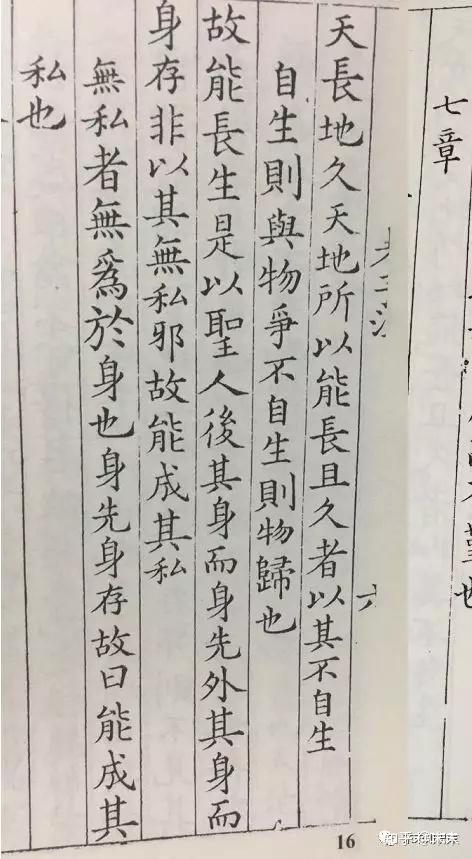 七章
天長地久天地所以能長且久者以其不自生
自生則與物爭不自生則物歸也
故能長生是以聖人後其身而身先外其身而
身存非以其無私邪故能成其私
無私者無爲於身也身先身存故曰能成其
私也
16
知乎